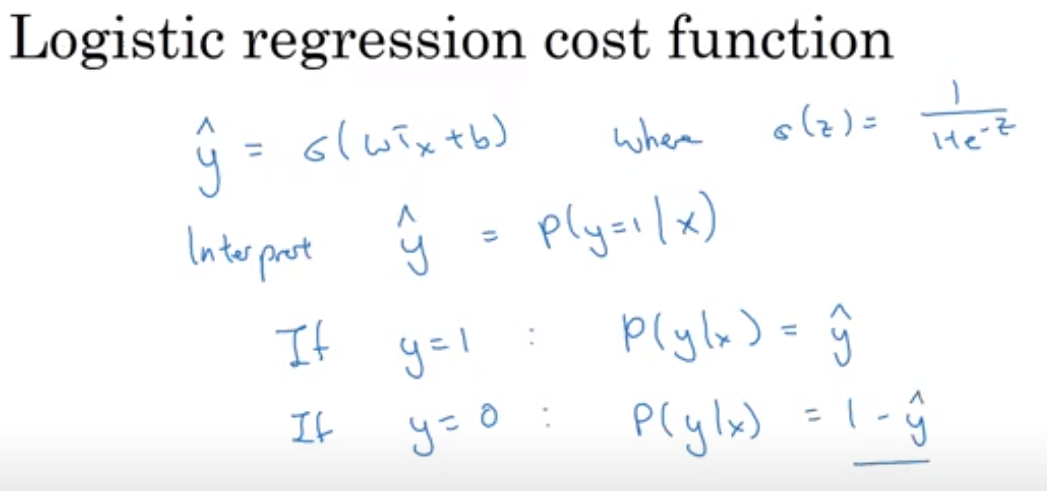 Logistic regression cost function
ŷ = σ(wᵀx + b) where σ(z) = 1/(1+e⁻ᶻ)
Interpret ŷ = p(y=1|x)
If y=1 : p(y|x) = ŷ
If y=0 : p(y|x) = 1-ŷ